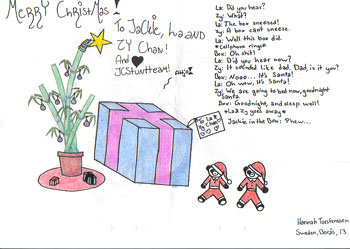 MERRY CHRISTMAS!
To JacKie, La and
ZY Chan!
And ♥
JCStuntteam!
La: Did you hear?
Zy: What?
La: The box sneezed!
Zy: A box cant sneeze.
La: Well this box did.
*Cellphone rings*
Box: Oh shit!
La: Did you hear now?
Zy: It sounded like dad. Dad, is it you?
Box: Nooo... It's Santa!
La: Oh wow.. It's Santa!
Zy: We are going to bed now, goodnight
Santa
Box: Goodnight, and sleep well!
*La&Zy goes away*
Jackie in the Box: Phew...
To La &
Chan!
Hannah Torstensson
Sweden, Borås, 13